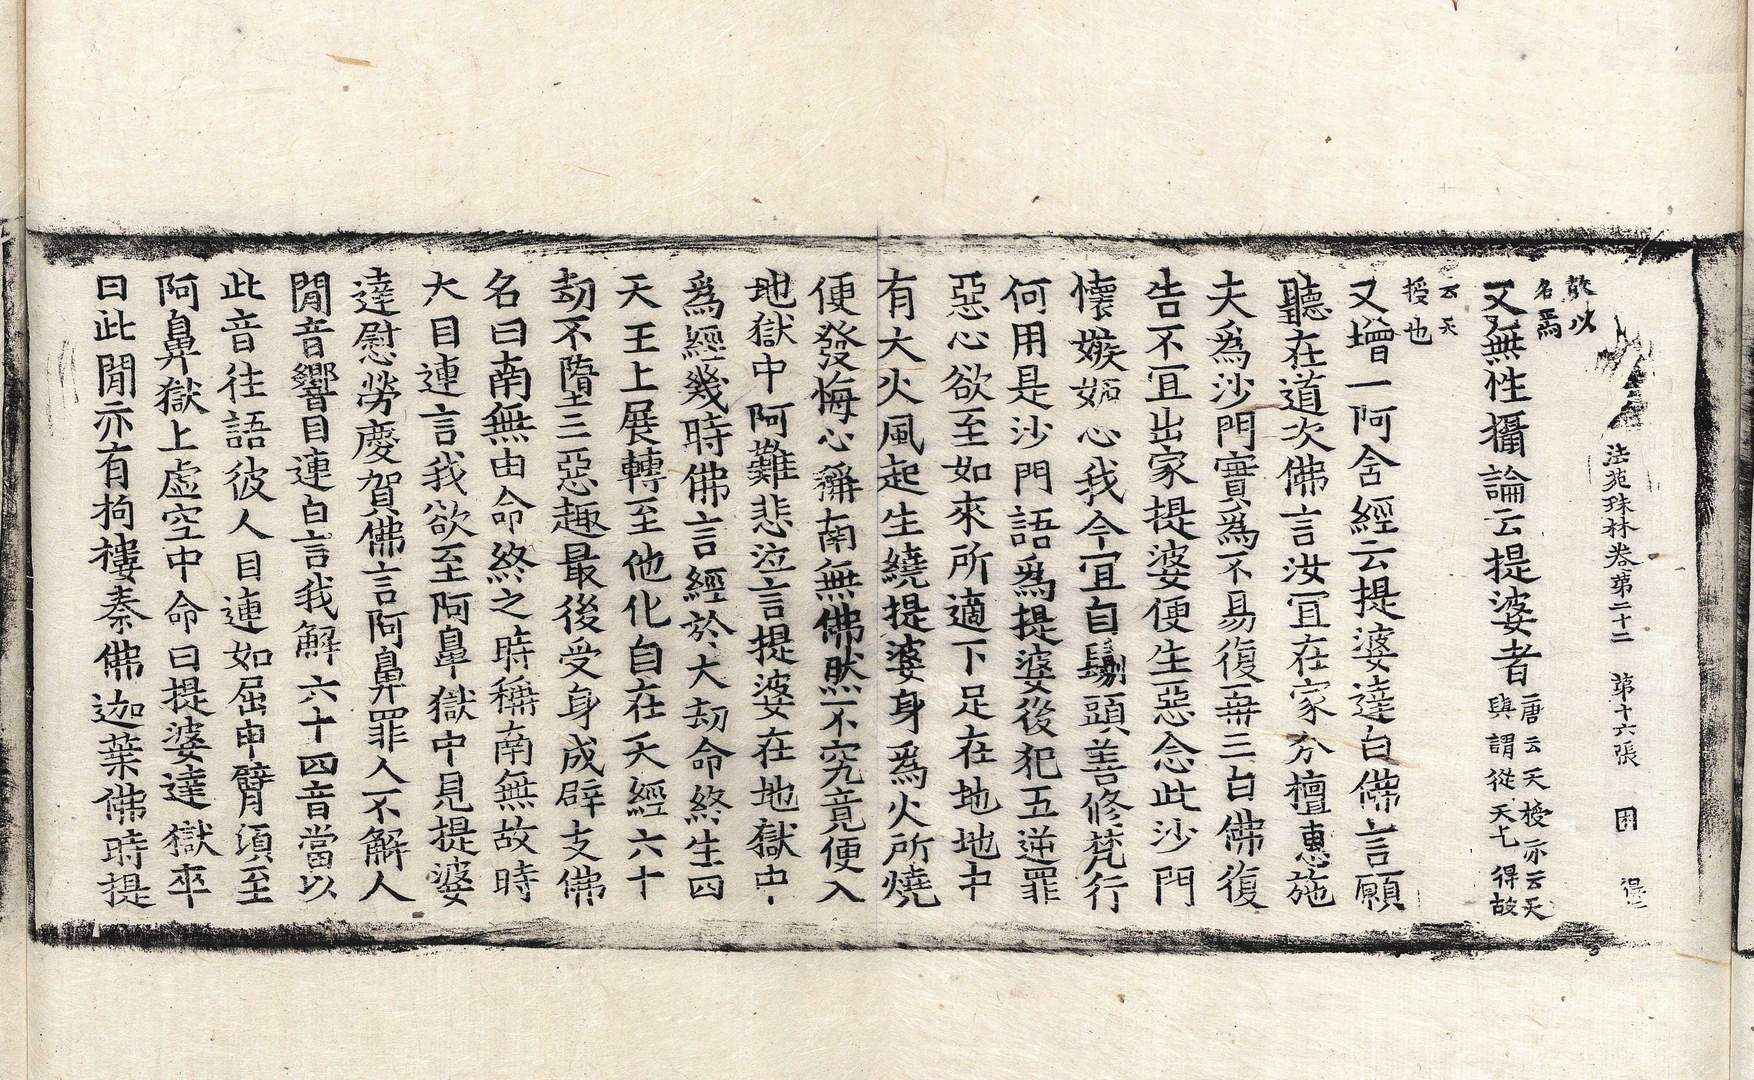 法苑珠林卷第二十二 第十六張 困 得
散以
名焉
又無性攝論云提婆者
唐云天授亦云天
與謂從天乞得故
云天
授也
又增一阿含經云提婆達白佛言願
聽在道次佛言汝冝在家分檀惠施
夫爲沙門實爲不易復再三白佛復
告不冝出家提婆便生惡念此沙門
懷嫉妬心我今冝自鬀頭善修梵行
何用是沙門語爲提婆後犯五逆罪
惡心欲至如來所適下足在地地中
有大火風起生繞提婆身爲火所燒
便發悔心稱南無佛然不究竟便入
地獄中阿難悲泣言提婆在地獄中
爲經幾時佛言經於大劫命終生四
天王上展轉至他化自在天經六十
劫不隋三惡趣最後受身成辟支佛
名曰南無由命終之時稱南無故時
大目連言我欲至阿鼻獄中見提婆
達慰勞慶賀佛言阿鼻罪人不解人
間音響目連白言我解六十四音當以
此音往語彼人目連如屈申臂須至
阿鼻獄上虛空中命曰提婆達獄卒
曰此間亦有拘樓秦佛迦葉佛時提